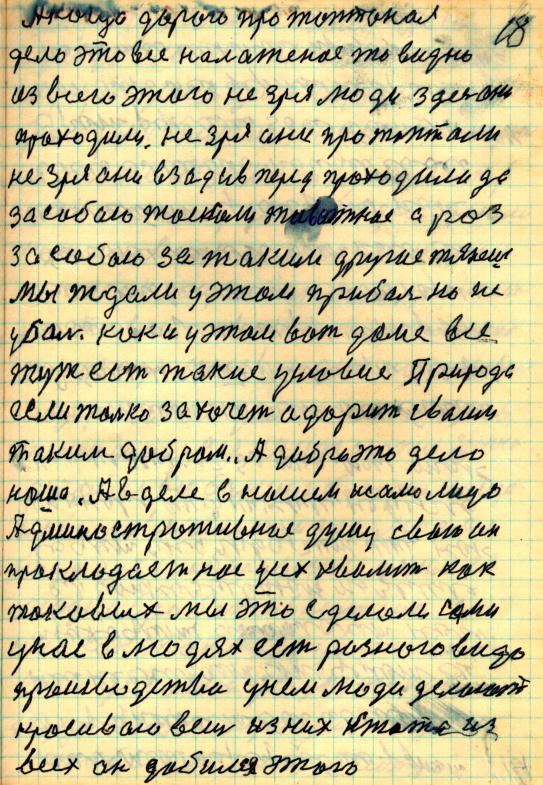 А когда дорога протоптоная
18
дело это все налаженое то видно
из всего этого не зря люди здес они
проходили. не зря они протоптали
не зря они взад и в перед проходили да
за собою таскали животное а роз
за собою за таким другие тянеш
мы ждали у этом прибоя но не
убал. как и у этом вот доме все
тут ест такие условие Природа
если толко захочет одарит своим
таким добром. А добро это дело
наша. А в деле в нашем само лицо
Административная душу свою он
прокладает нас усех хвалит как
таковых мы это сделали сами
у нас в людях ест разного вида
производства у нем люди делают
красивою вещ из них кто то из
всех он добился этого